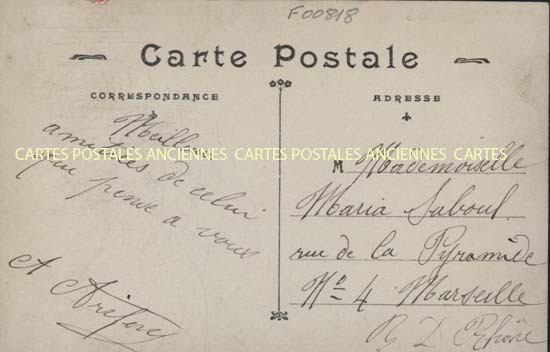 F00818
Carte Postale
CORRESPONDANCE
ADRESSE
Meilleures
amitiés de celui
qui pense a vous
A
CARTES POSTALES ANCIENNES CARTES POSTALES ANCIENNES CARTES
M Mademoiselle
Maria Saboul
rue de la Pyramide
No 4 Marseille
B D Rhône